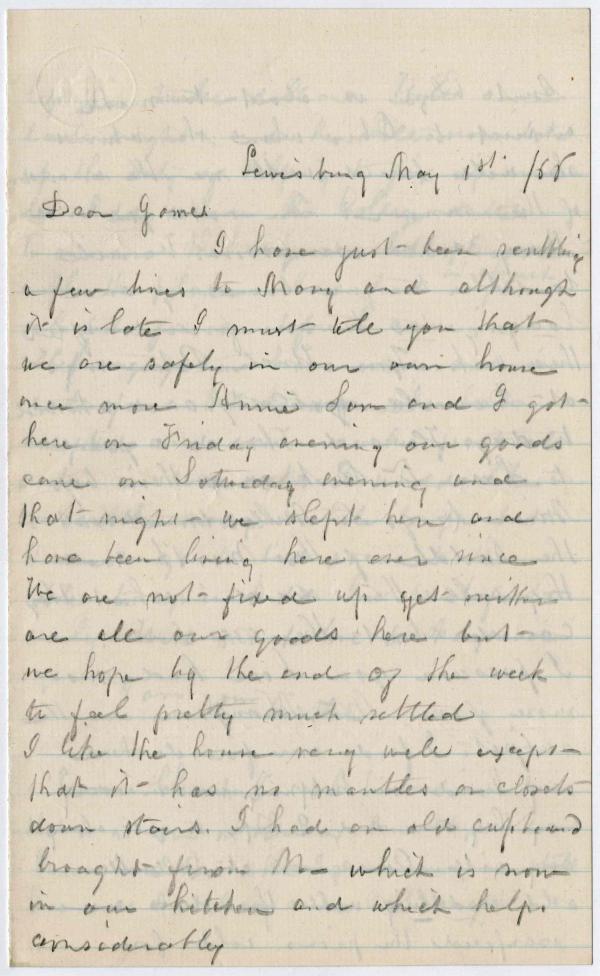 Lewisburg May 1st /66
Dear James
I have just been scribbling
a few lines to Mary and although
it is late I must tell you that
we are safely in our own house
once more Annie Sam and I got
here on Friday evening our goods
came on Saturday evening and
that night we slept here and
have been living here ever since
We are not fixed up yet neither
are all our goods here but
we hope by the end of the week
to feel pretty much settled
I like the house very well except
that it has no mantles or closets
down stairs. I had an old cupboard
brought from M— which is now
in our kitchen and which helps
considerably